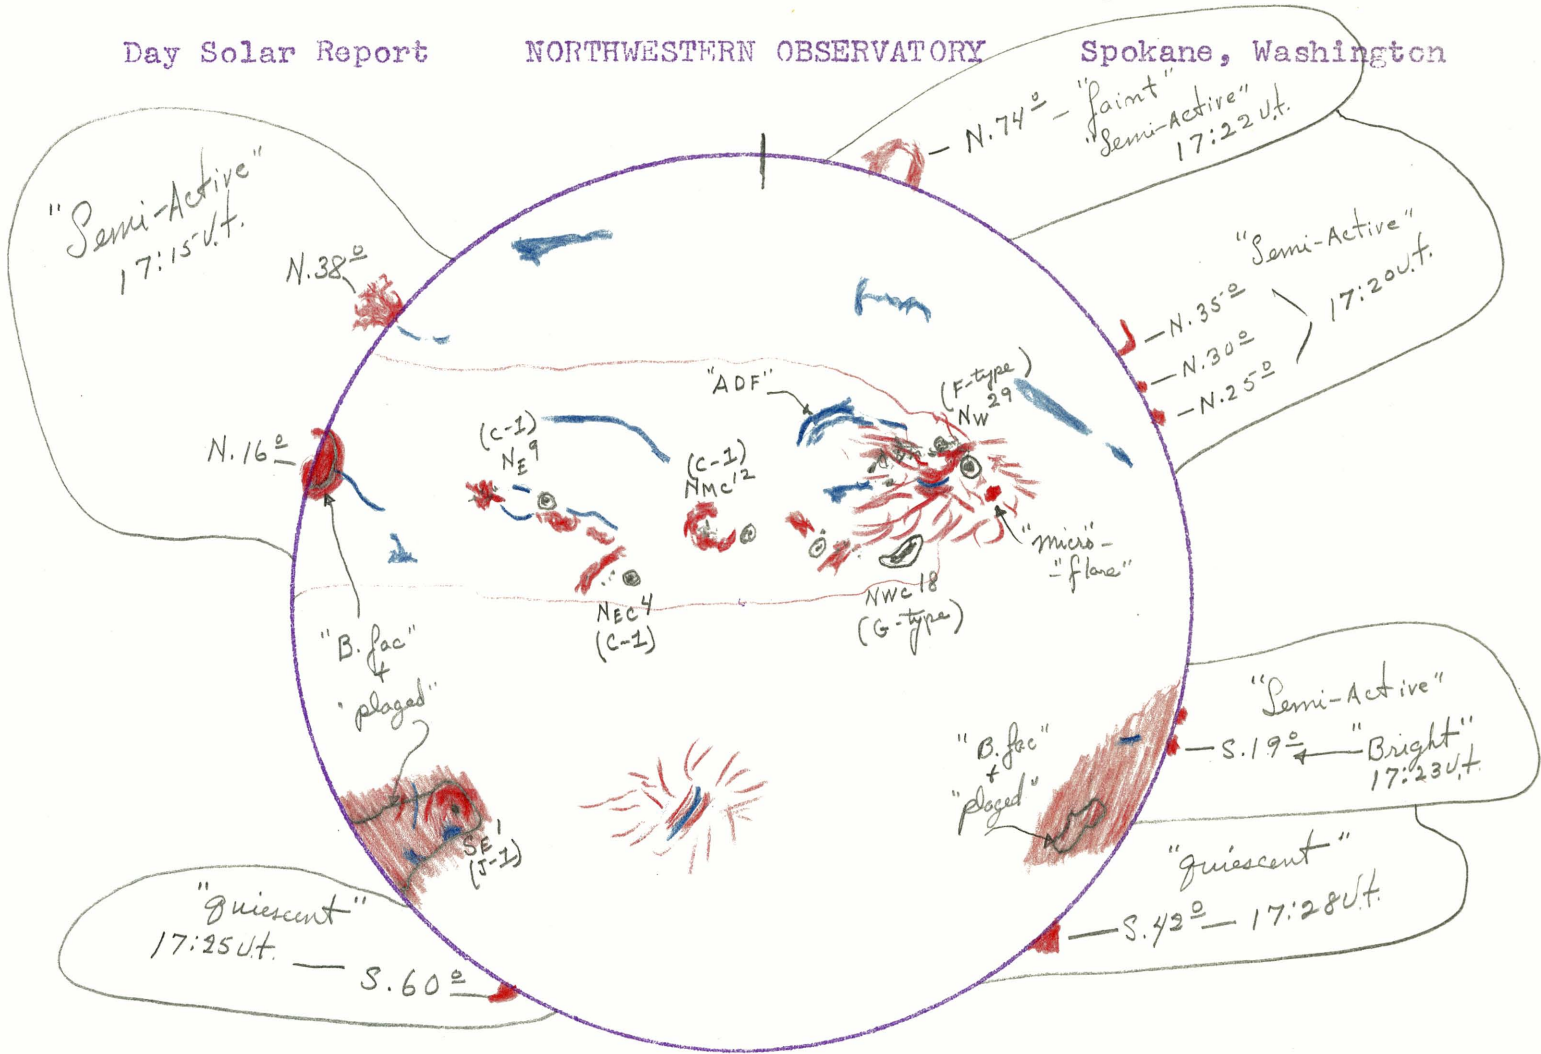 Day Solar Report NORTHWESTERN OBSERVATORY Spokane, Washington
N.74º – "faint"
"Semi-Active"
17:22 U.t.
"Semi-Active"
17:15 U.t.
N.38º
"Semi-Active"
N.35º
N.30º
N.25º
17:20 U.t.
"ADF"
(F-type)
NW 29
(C-1)
NE 9
(C-1)
NMC 12
N.16º
"micro-
-flare"
NEC 4
(C-1)
NWC 18
(G-type)
"B.fac"
+
"plaged"
"B.fac"
+
"plaged"
"Semi-Active"
S.19º "Bright"
17:23 U.t.
SE 1
(J-1)
"quiescent"
S.42º — 17:28 U.t.
"quiescent"
17:25 U.t.
S.60º